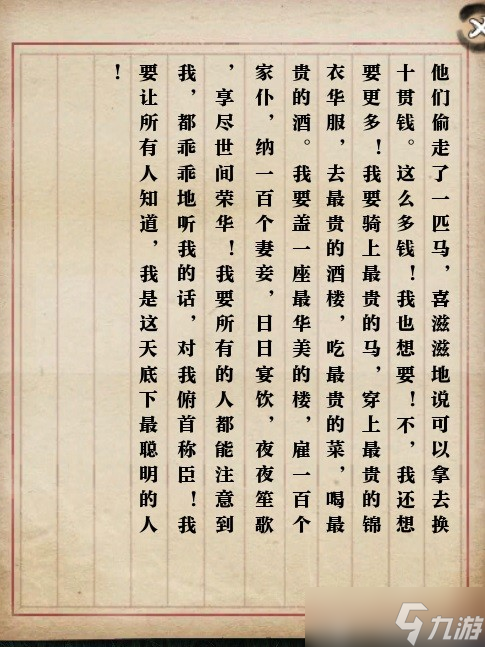 他们偷走了一匹马，喜滋滋地说可以拿去换
十贯钱。这么多钱！我也想要！不，我还想
要更多！我要骑上最贵的马，穿上最贵的锦
衣华服，去最贵的酒楼，吃最贵的菜，喝最
贵的酒。我要盖一座最华美的楼，雇一百个
家仆，纳一百个妻妾，日日宴饮，夜夜笙歌
，享尽世间荣华！我要所有的人都能注意到
我，都乖乖地听我的话，对我俯首称臣！我
要让所有人知道，我是这天底下最聪明的人
！
九游